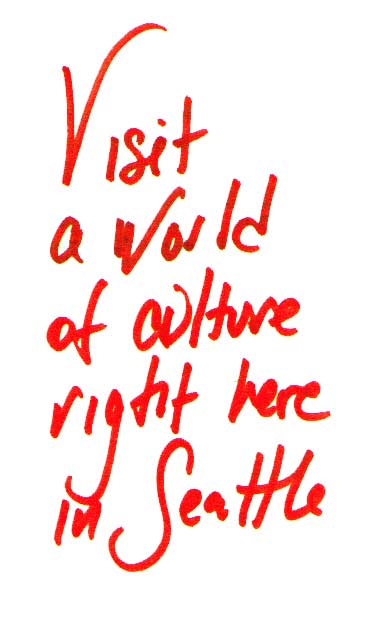 Visit
a World
of culture
right here
in Seattle